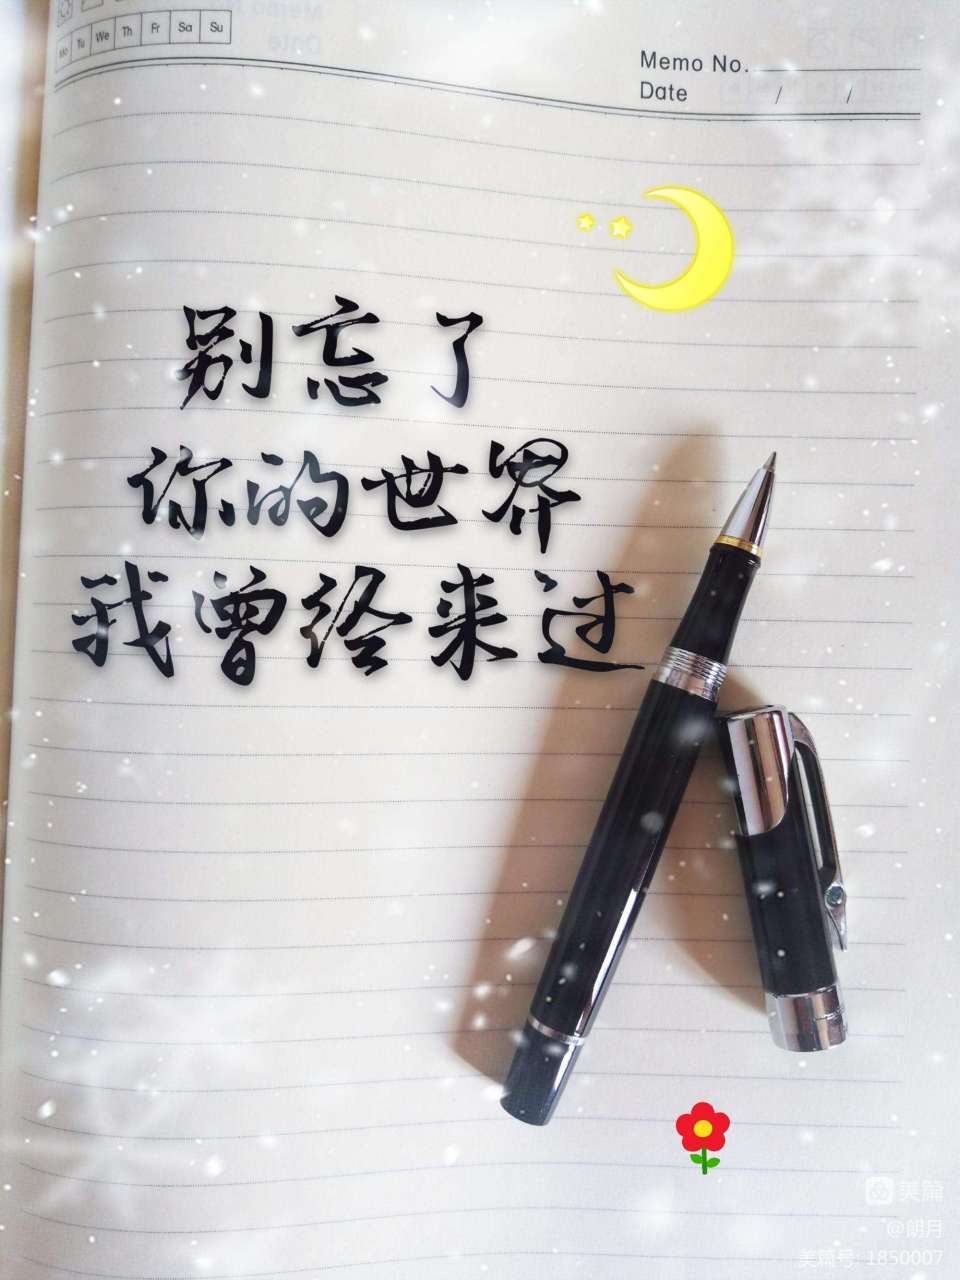 Mo Tu We Th Fr Sa Su
Memo No.
Date / /
别忘了
你的世界
我曾经来过
美篇
@朗月
美篇号: 1850007